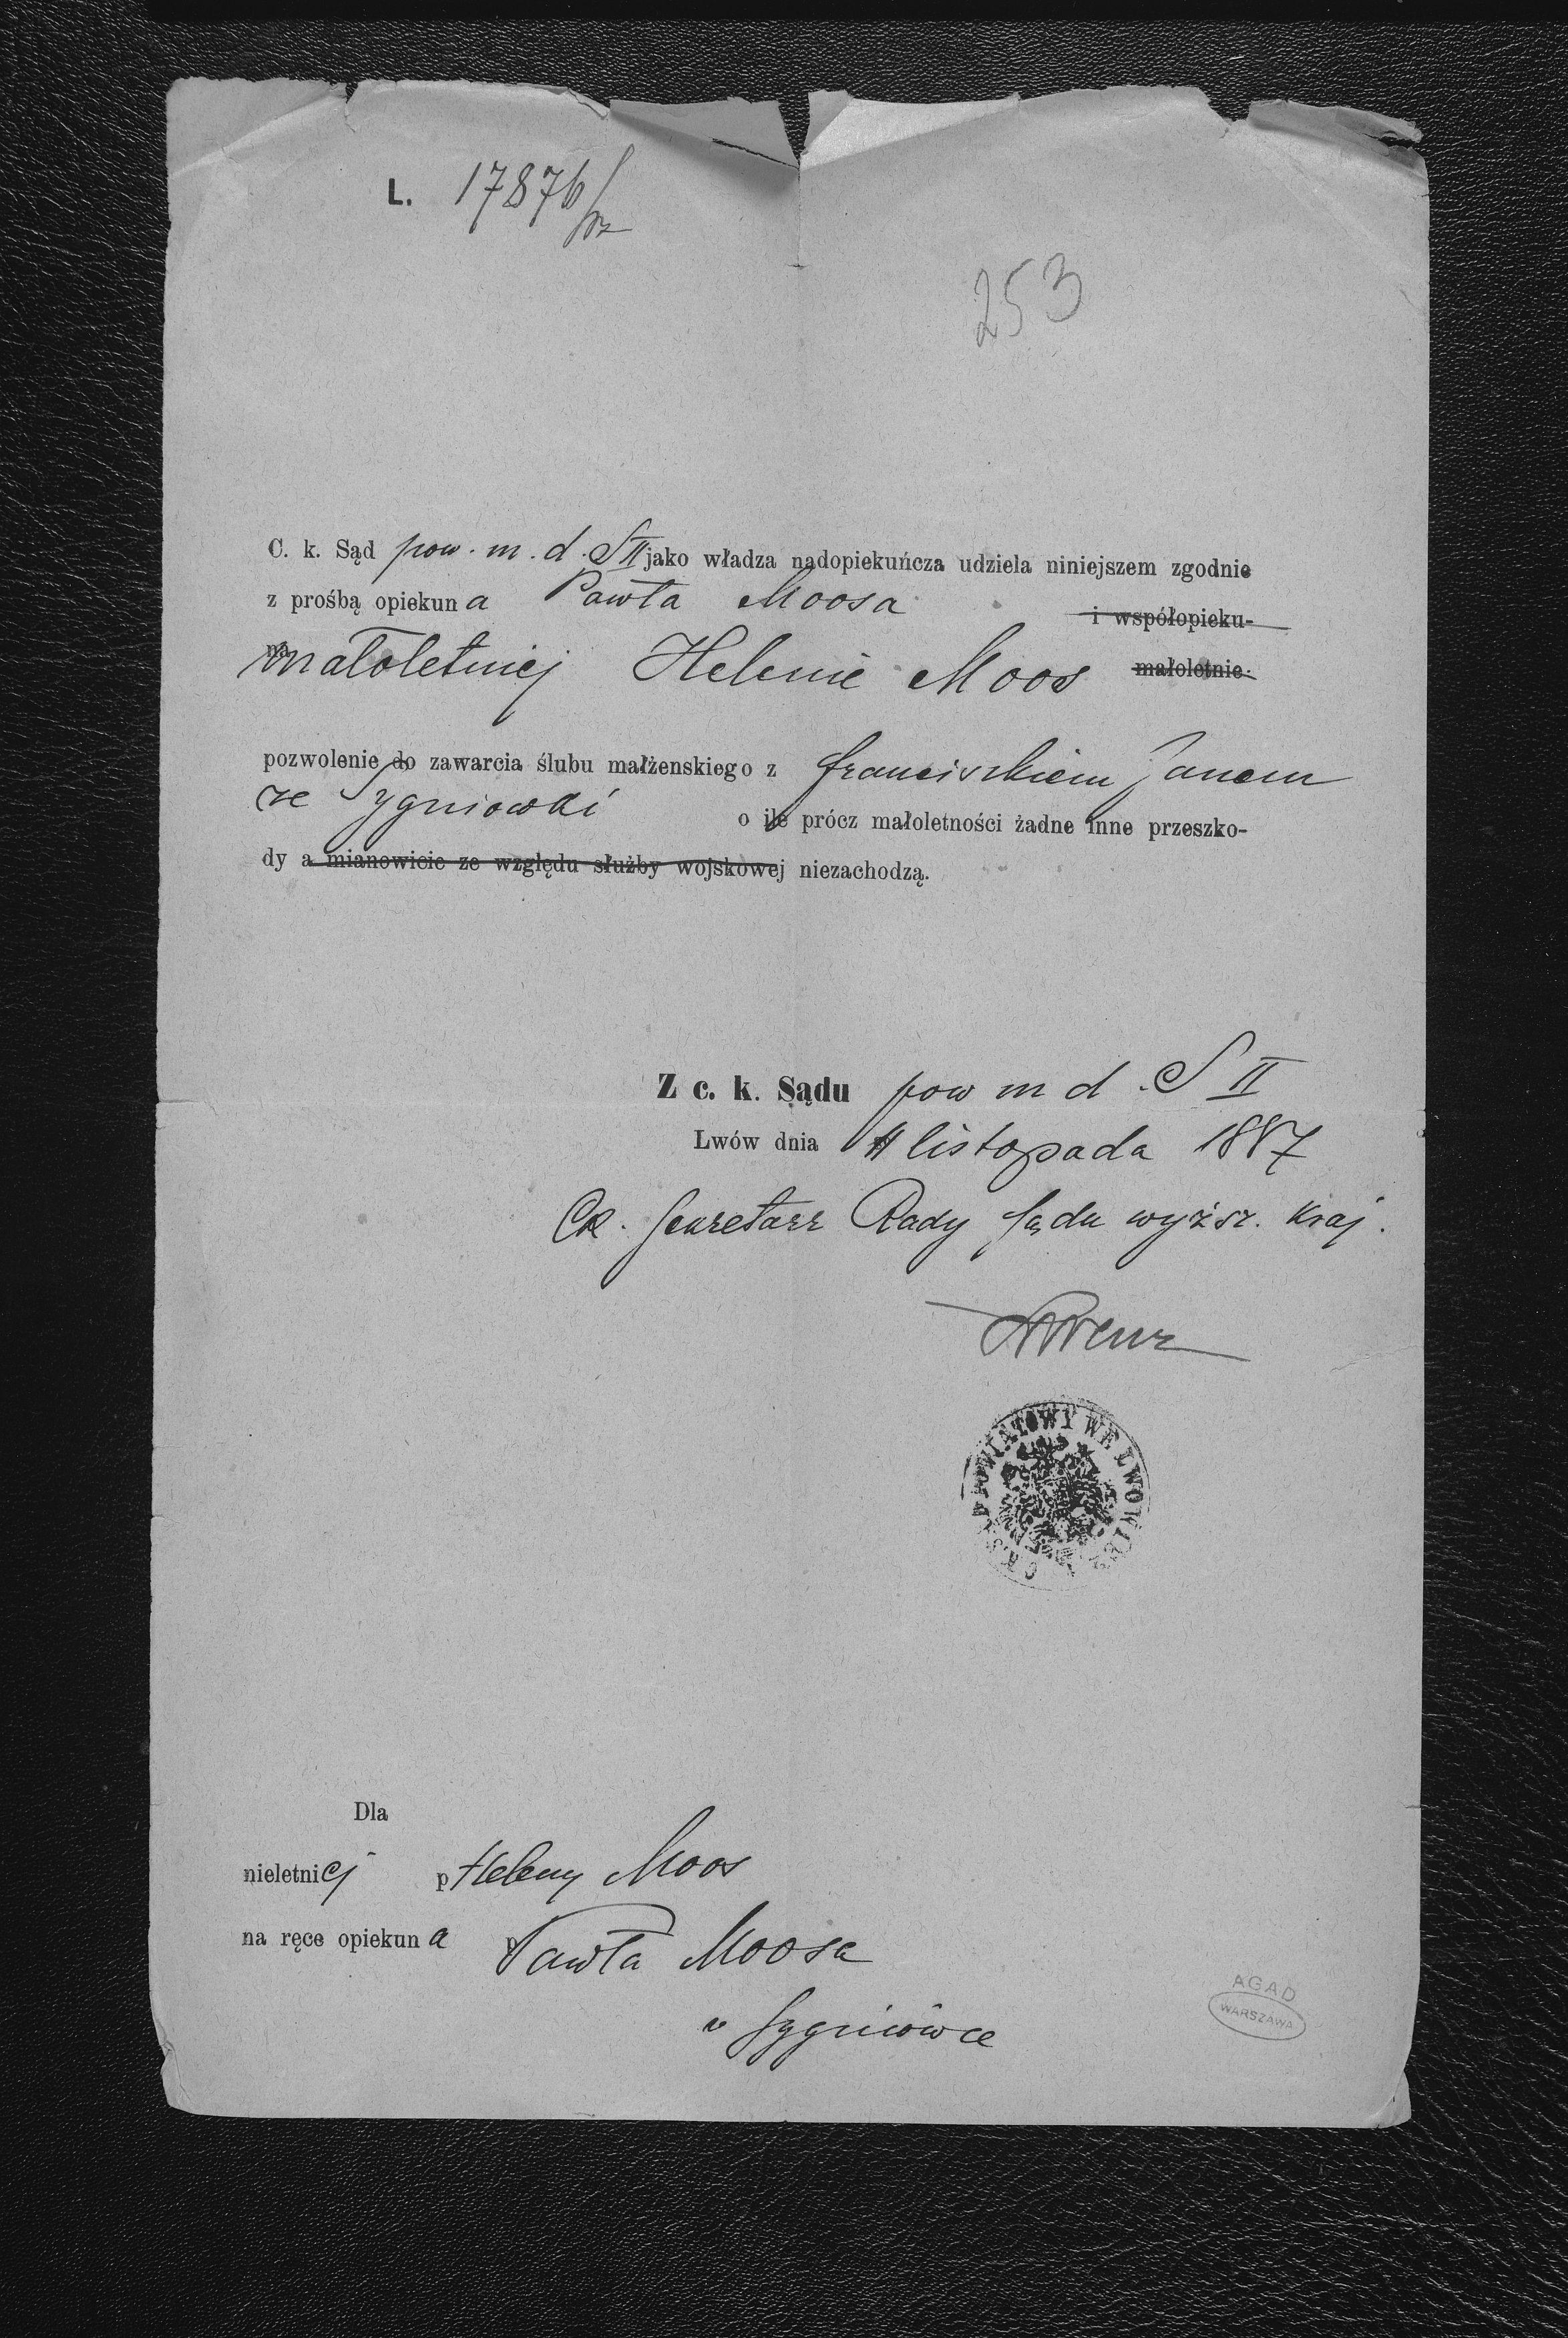 L. 17876
253
C. k. Sąd pow. m. d. S II jako władza nadopiekuńcza udziela niniejszem zgodnie
z prośbą opiekuna Pawła Moosa i współopieku-
na
małoletniej Helenie Moos małoletnie
pozwolenie do zawarcia ślubu małżenskiego z Franciszkiem Janem
ze Sygniowki o ile prócz małoletności żadne inne przeszko-
dy a mianowicie ze względu służby wojskowej niezachodzą.
Z c. k. Sądu pow m d. S II
Lwów dnia listopada 1887
Ck. Sekretarz Rady Sądu wyższ. kraj.
POWIATOWY WE LWOWIE
Dla
nieletniej p Heleny Moos
na ręce opiekuna p Pawła Moosa
w Sygniówce
AGAD
WARSZAWA